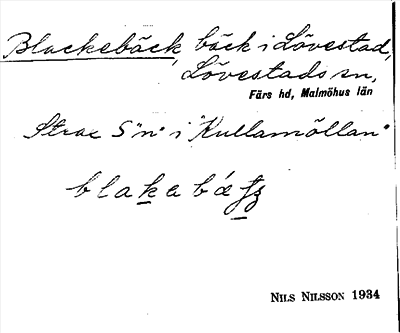 Blackebäck, bäck i Lövestad,
Lövestads sn,
Färs hd, Malmöhus län
Strax S"n" i "Kullamöllan"
blakabá
NILS NILSSON 1934